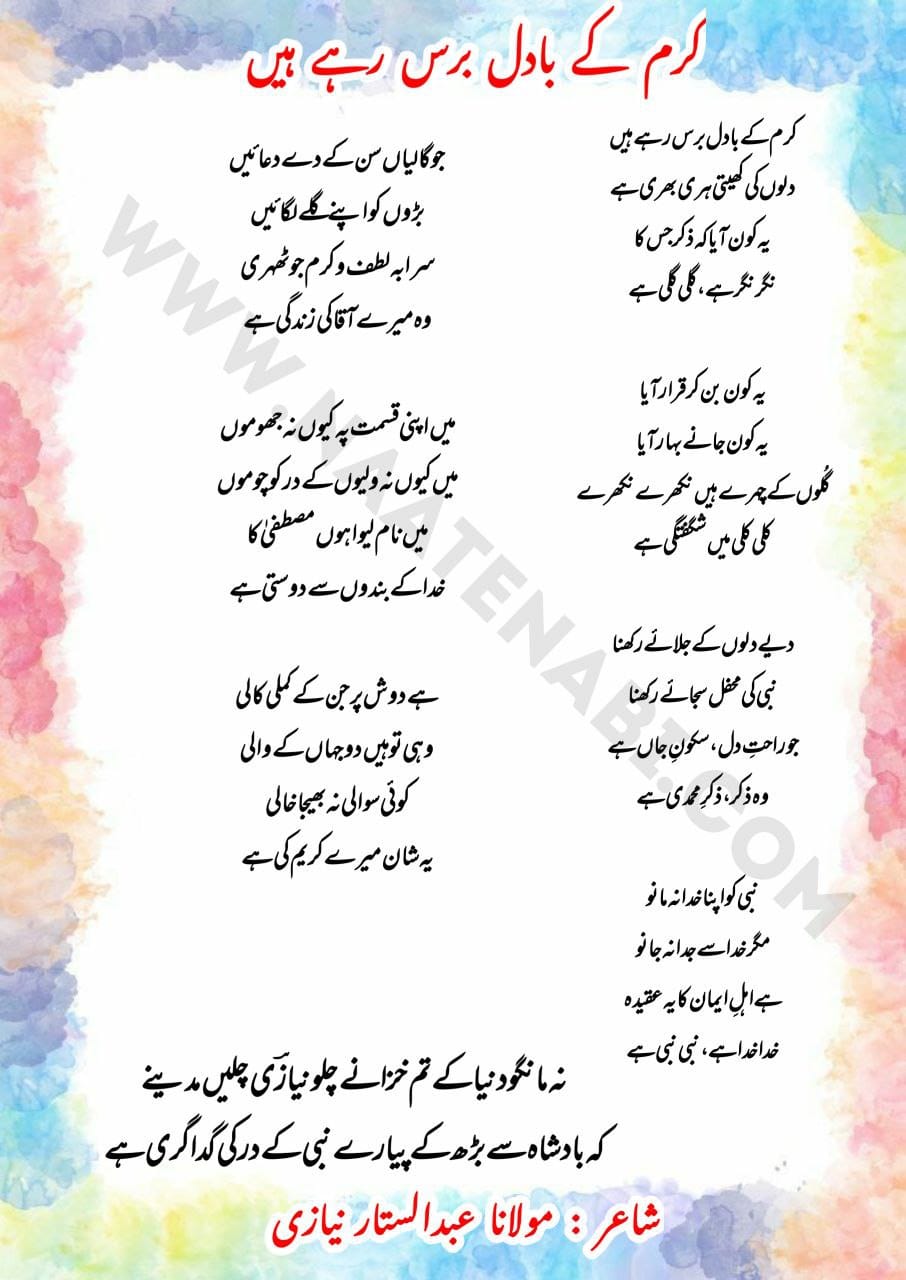 کرم کے بادل برس رہے ہیں
کرم کے بادل برس رہے ہیں
دلوں کی کھیتی ہری بھری ہے
یہ کون آیا کہ ذکر جس کا
نگر نگر ہے، گلی گلی ہے
یہ کون بن کر قرار آیا
یہ کون جانے بہار آیا
گُلوں کے چہرے ہیں نکھرے نکھرے
کلی کلی میں شگفتگی ہے
دیے دلوں کے جلائے رکھنا
نبی کی محفل سجائے رکھنا
جو راحتِ دل، سکونِ جاں ہے
وہ ذکر، ذکرِ محمدی ہے
نبی کو اپنا خدا نہ مانو
مگر خدا سے جدا نہ جانو
ہے اہلِ ایمان کا یہ عقیدہ
خدا خدا ہے، نبی نبی ہے
جو گالیاں سن کے دے دعائیں
بڑوں کو اپنے گلے لگائیں
سراپہ لطف و کرم جو ٹھہری
وہ میرے آقا کی زندگی ہے
میں اپنی قسمت پہ کیوں نہ جھوموں
میں کیوں نہ ولیوں کے در کو چوموں
میں نام لیوا ہوں مصطفیٰ کا
خدا کے بندوں سے دوستی ہے
ہے دوش پر جن کے کملی کالی
وہی تو ہیں دو جہاں کے والی
کوئی سوالی نہ بھیجا خالی
یہ شان میرے کریم کی ہے
نہ مانگو دنیا کے تم خزانے چلو نیازؔی چلیں مدینے
کہ بادشاہ سے بڑھ کے پیارے نبی کے در کی گداگری ہے
شاعر : مولانا عبدالستار نیازی
WWW.NAATENABI.COM